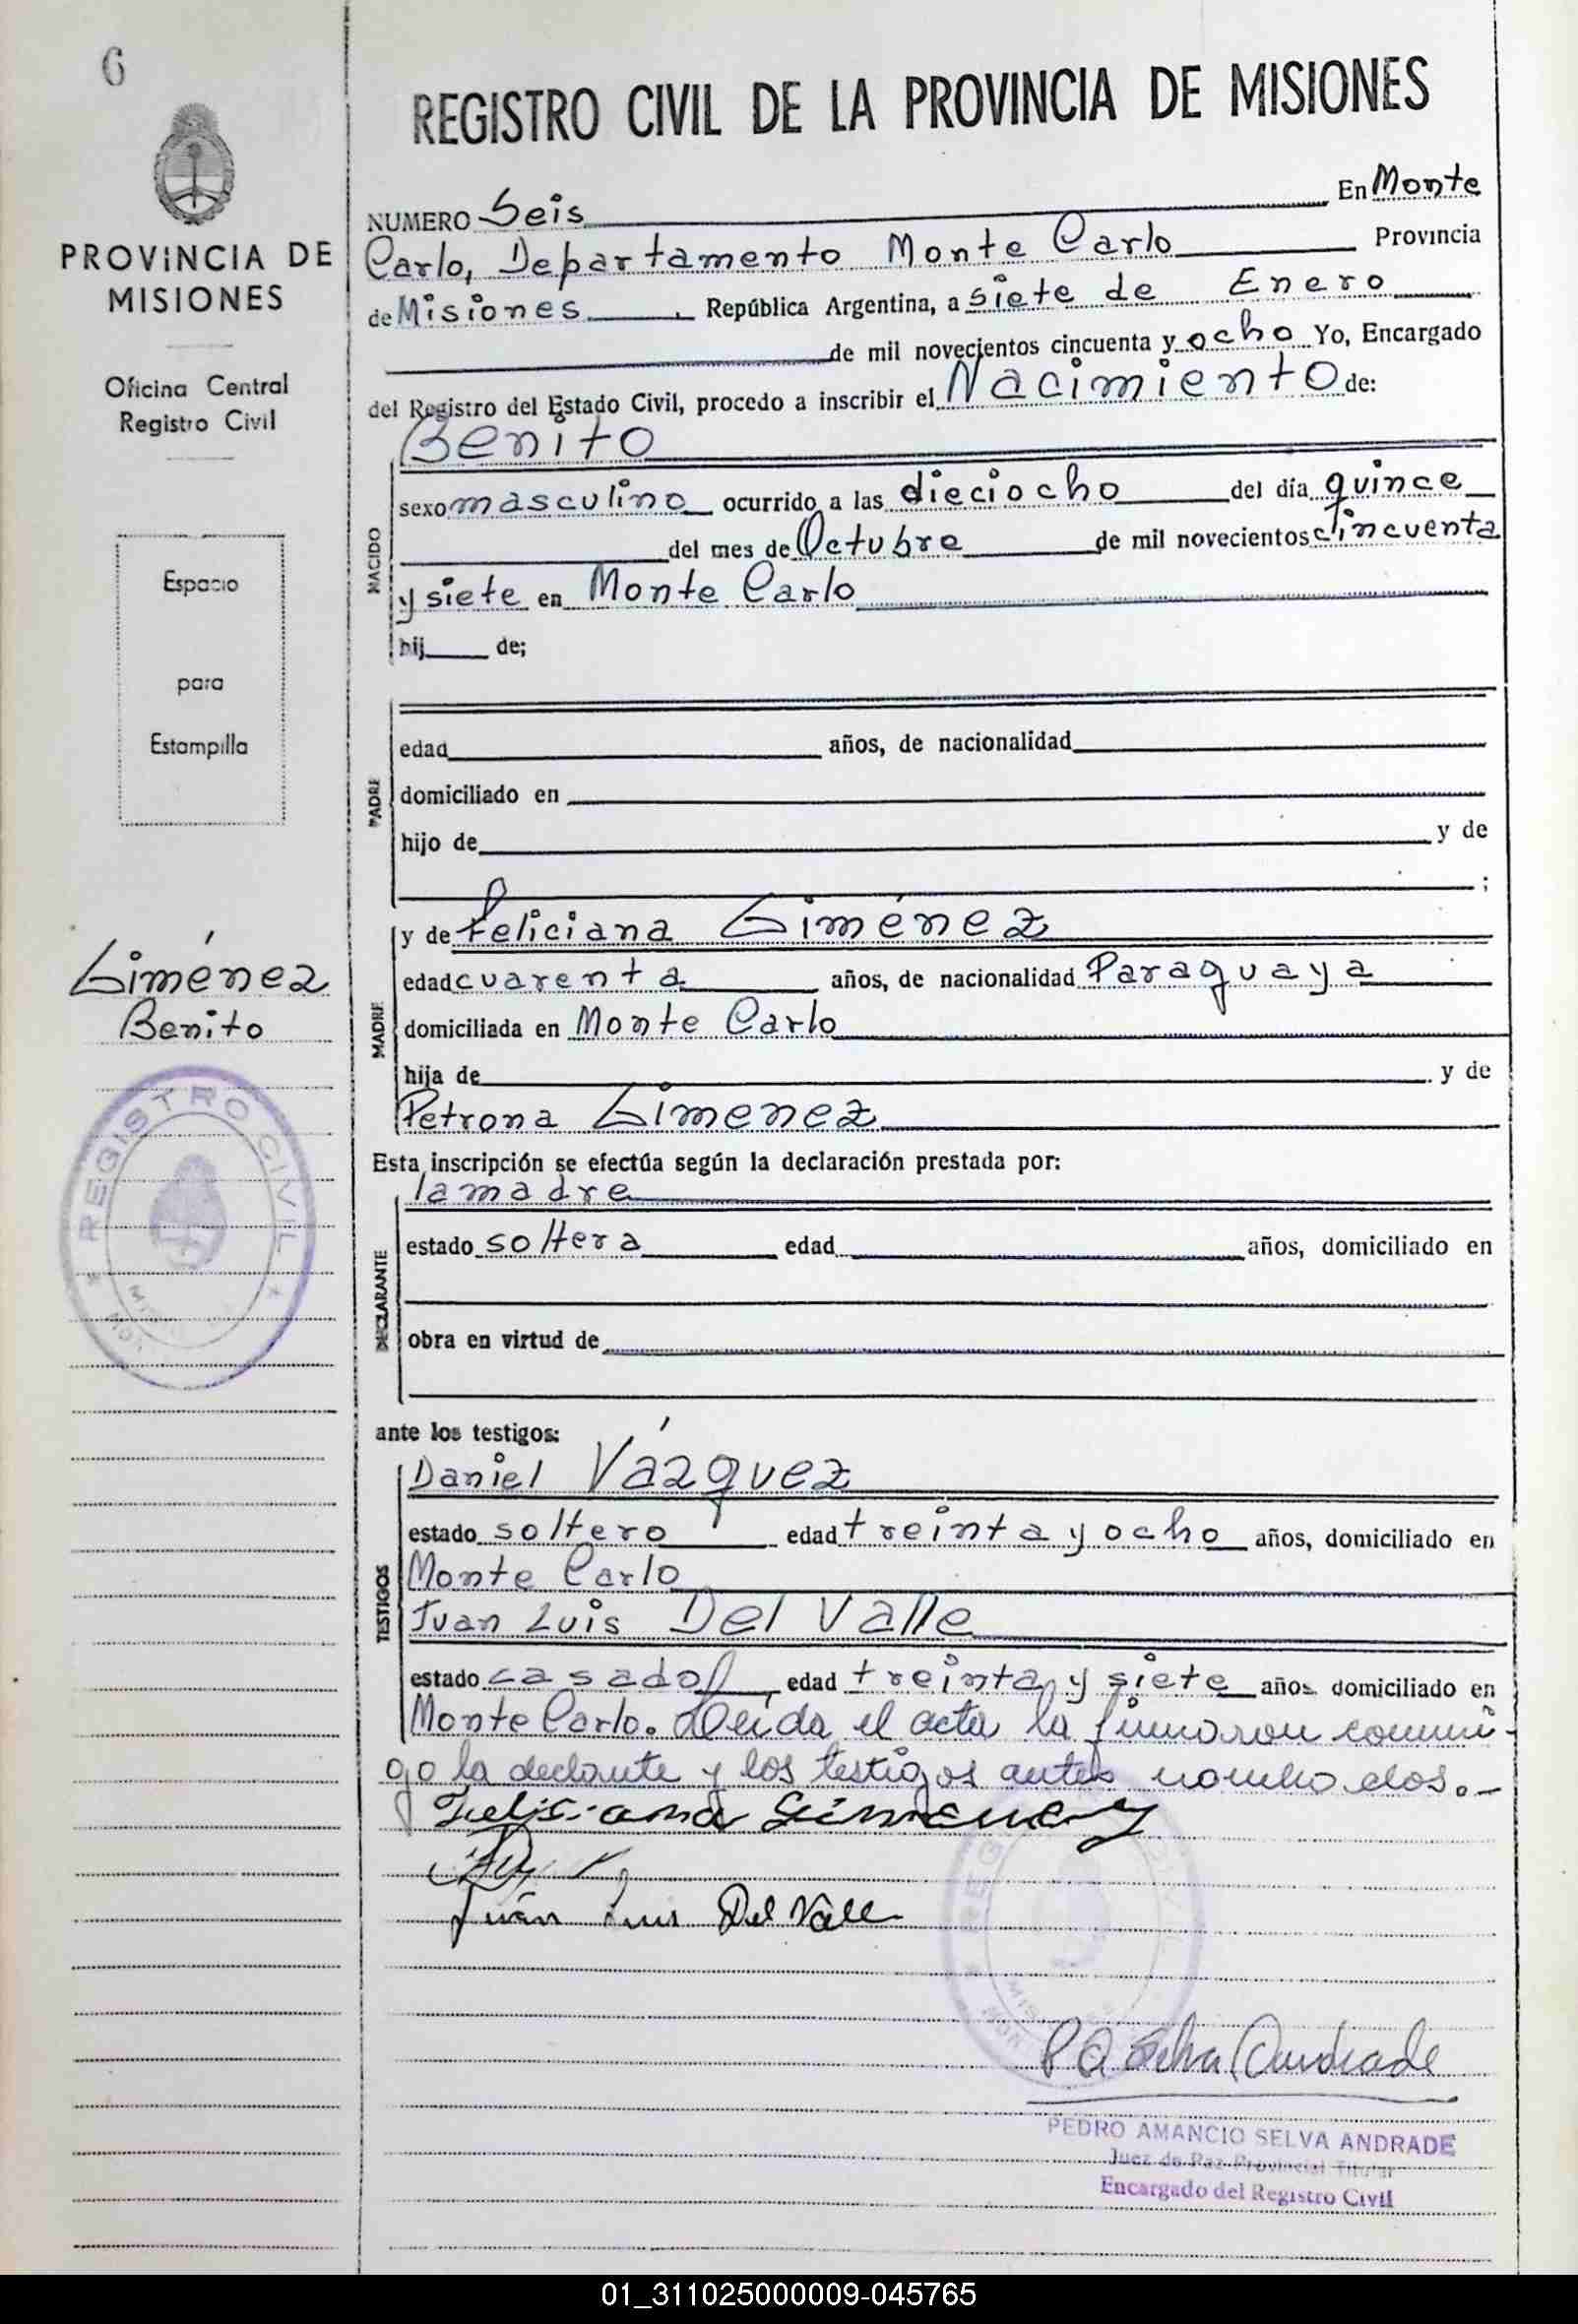 6
PROVINCIA DE
MISIONES
Oficina Central
Registro Civil
Espacio
para
Estampilla
Giménez
Benito
REGISTRO CIVIL
REGISTRO CIVIL DE LA PROVINCIA DE MISIONES
NUMERO Seis En Monte
Carlo, Departamento Monte Carlo Provincia
de Misiones , República Argentina, a siete de Enero
de mil novecientos cincuenta y ocho Yo, Encargado
del Registro del Estado Civil, procedo a inscribir el Nacimiento de:
NACIDO
Benito
sexo masculino ocurrido a las dieciocho del día quince
del mes de Octubre de mil novecientos cincuenta
y siete en Monte Carlo
hij de;
PADRE
edad años, de nacionalidad
domiciliado en
hijo de y de
;
MADRE
y de Feliciana Giménez
edad cuarenta años, de nacionalidad Paraguaya
domiciliada en Monte Carlo
hija de y de
Petrona Gimenez
Esta inscripción se efectúa según la declaración prestada por:
DECLARANTE
la madre
estado soltera edad años, domiciliado en
obra en virtud de
ante los testigos:
TESTIGOS
Daniel Vázquez
estado soltero edad treinta y ocho años, domiciliado en
Monte Carlo
Juan Luis Del Valle
estado casado, edad treinta y siete años domiciliado en
Monte Carlo. Leida el acta la firmaron conmi-
go la declarante y los testigos antes nombrados.-
Feliciana Gimenez
Juan Luis Del Valle
P A Selva Andrade
PEDRO AMANCIO SELVA ANDRADE
Juez de Paz Provincial Titular
Encargado del Registro Civil
01_311025000009-045765